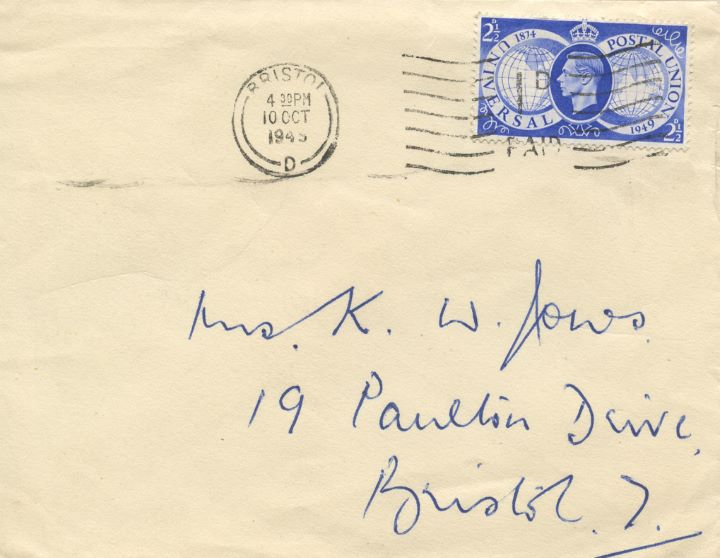 2 D 1/2
UNIVERSAL 1874 POSTAL UNION 1949
2 D 1/2
BRISTOL
4 30 PM
10 OCT
1949
D
1 D
PAID
Mrs. K. W. Jones.
19 Paulton Drive,
Bristol. 7.